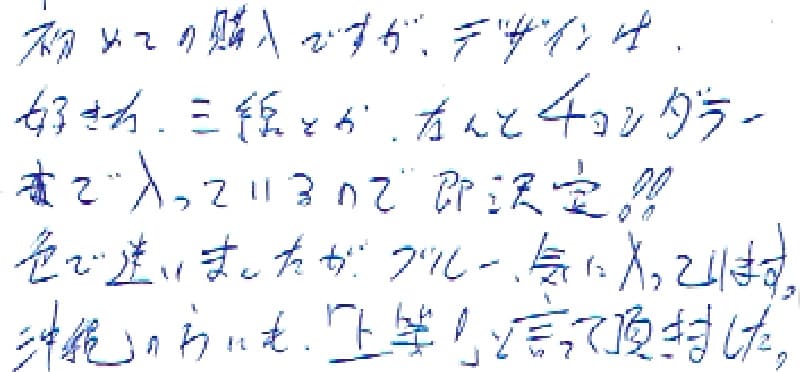 初めての購入ですが、デザインは、
好きな、三線とか、なんとチョンダラー
まで入っているので即決定!!
色で迷いましたが、ブルー、気に入ってます。
沖縄の方にも、「上等」と言って頂きました。